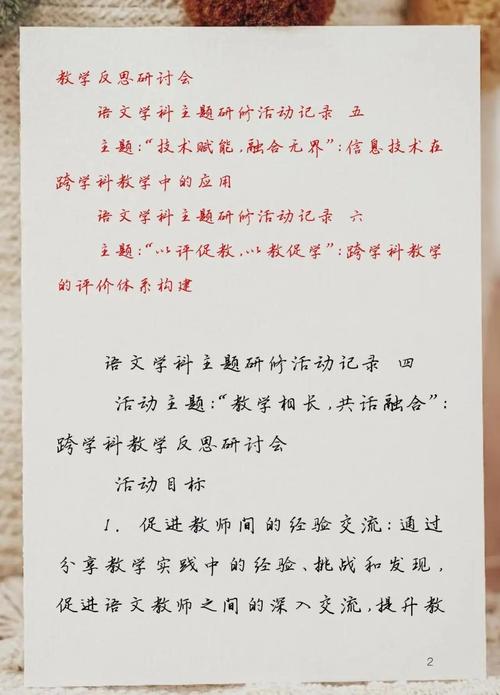 教学反思研讨会
语文学科主题研修活动记录 五
主题：“技术赋能，融合无界”：信息技术在
跨学科教学中的应用
语文学科主题研修活动记录 六
主题：“以评促教，以教促学”：跨学科教学
的评价体系构建
语文学科主题研修活动记录 四
活动主题：“教学相长，共话融合”：
跨学科教学反思研讨会
活动目标
1. 促进教师间的经验交流：通过
分享教学实践中的经验、挑战和发现，
促进语文教师之间的深入交流，提升教
2